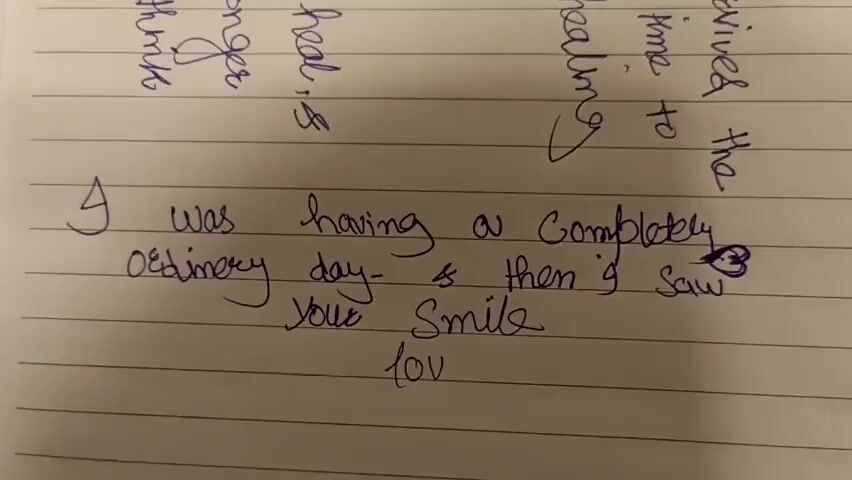 rvived the
time to
healing
heal. &
onger
think
I was having a completely
ordinery day- & then i saw
your smile
lov